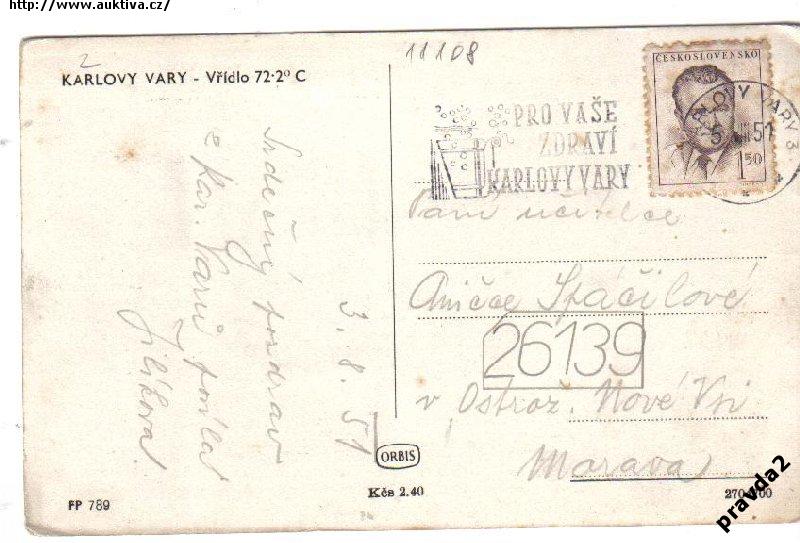 http://www.auktiva.cz/
2
11108
KARLOVY VARY - Vřídlo 72·2° C
ČESKOSLOVENSKO
1 50
KARLOVY VARY 3
5 VIII 51
PRO VAŠE
ZDRAVÍ
KARLOVY VARY
Srdečný pozdrav
z Kar. Varů posílá
Jilíková
3. 8. 51
Paní učitelce
Aničce Stáčilové
26139
v Ostrož. Nové Vsi
Morava
ORBIS
Kčs 2.40
FP 789
pravda2